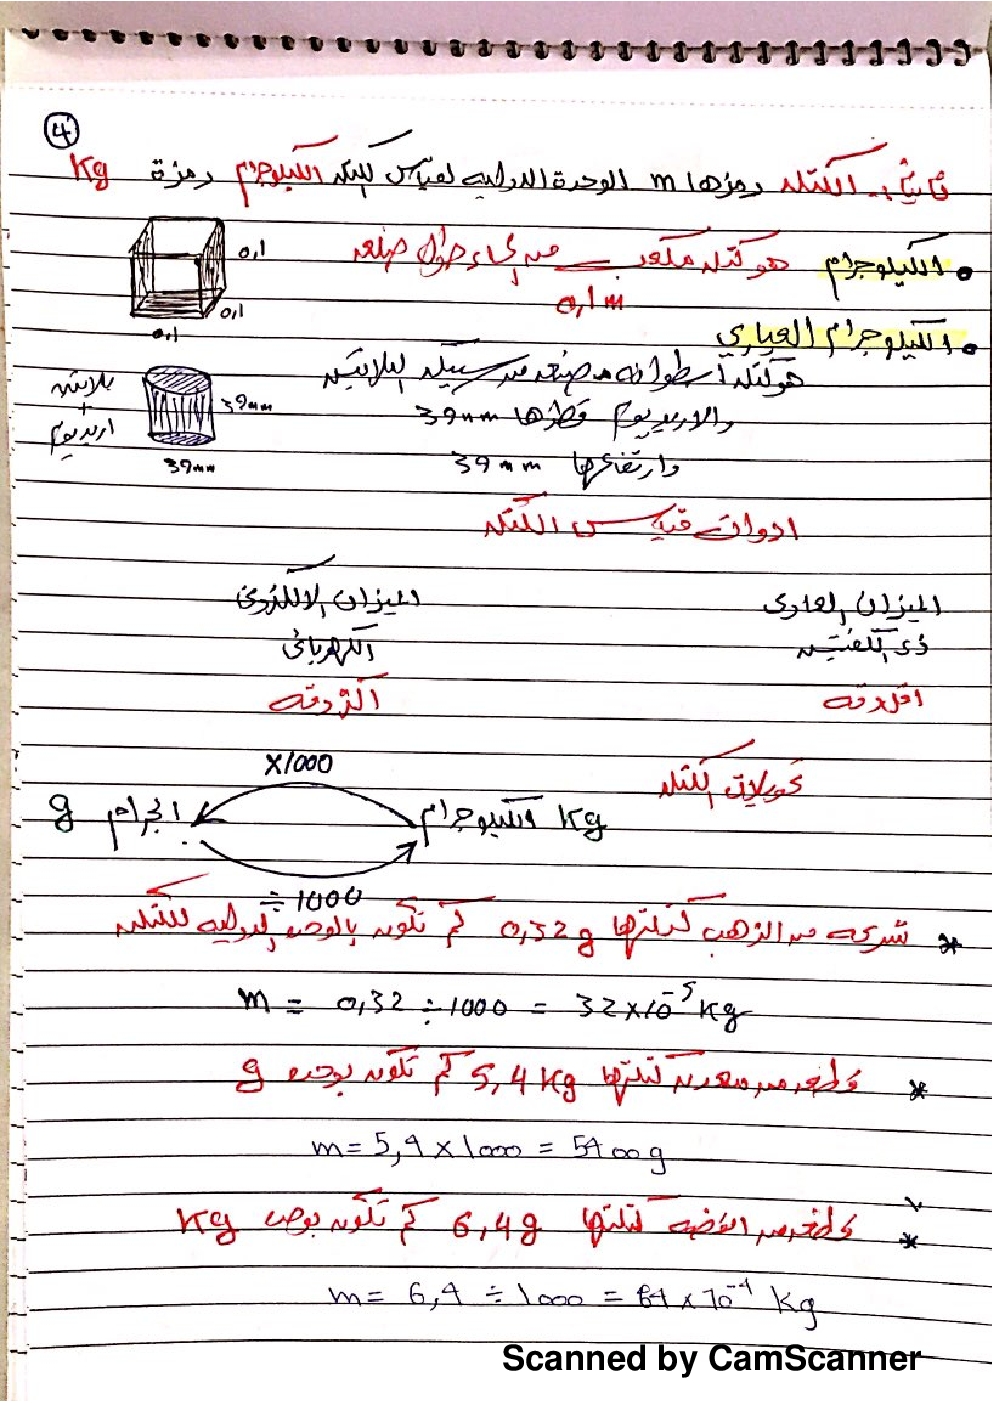 4
ثانياً:- الكتله رمزها m الوحدة الدوليه لقياس الكتله الكيلوجرام رمزة Kg
• الكيلوجرام هو كتله مكعب من الماء طول ضلعه
0,1 m
0,1
0,1
0,1
• الكيلوجرام العياري
هو كتلة اسطوانه مصنعه من سبيكه البلاتين
والاريديوم قطرها 39mm
وارتفاعها 39mm
بلاتين
+
اريديوم
39mm
39mm
ادوات قياس الكتله
الميزان العادى
ذى الكفتين
اقل دقه
الميزان الالكترونى
الكهربائى
اكثر دقه
تحويلات الكتله
X1000
الكيلوجرام Kg
الجرام g
÷ 1000
* شريحه من الذهب كتلتها 0,32g كم تكون بالوحده الدوليه للكتله
m = 0,32 ÷ 1000 = 32×10⁻⁵ Kg
* قطعه من معدن كتلتها 5,4 Kg كم تكون بوحده g
m = 5,4 × 1000 = 5400g
* قطعه من الفضه كتلتها 6,4g كم تكون بوحده Kg
m = 6,4 ÷ 1000 = 64 × 10⁻⁴ Kg
Scanned by CamScanner